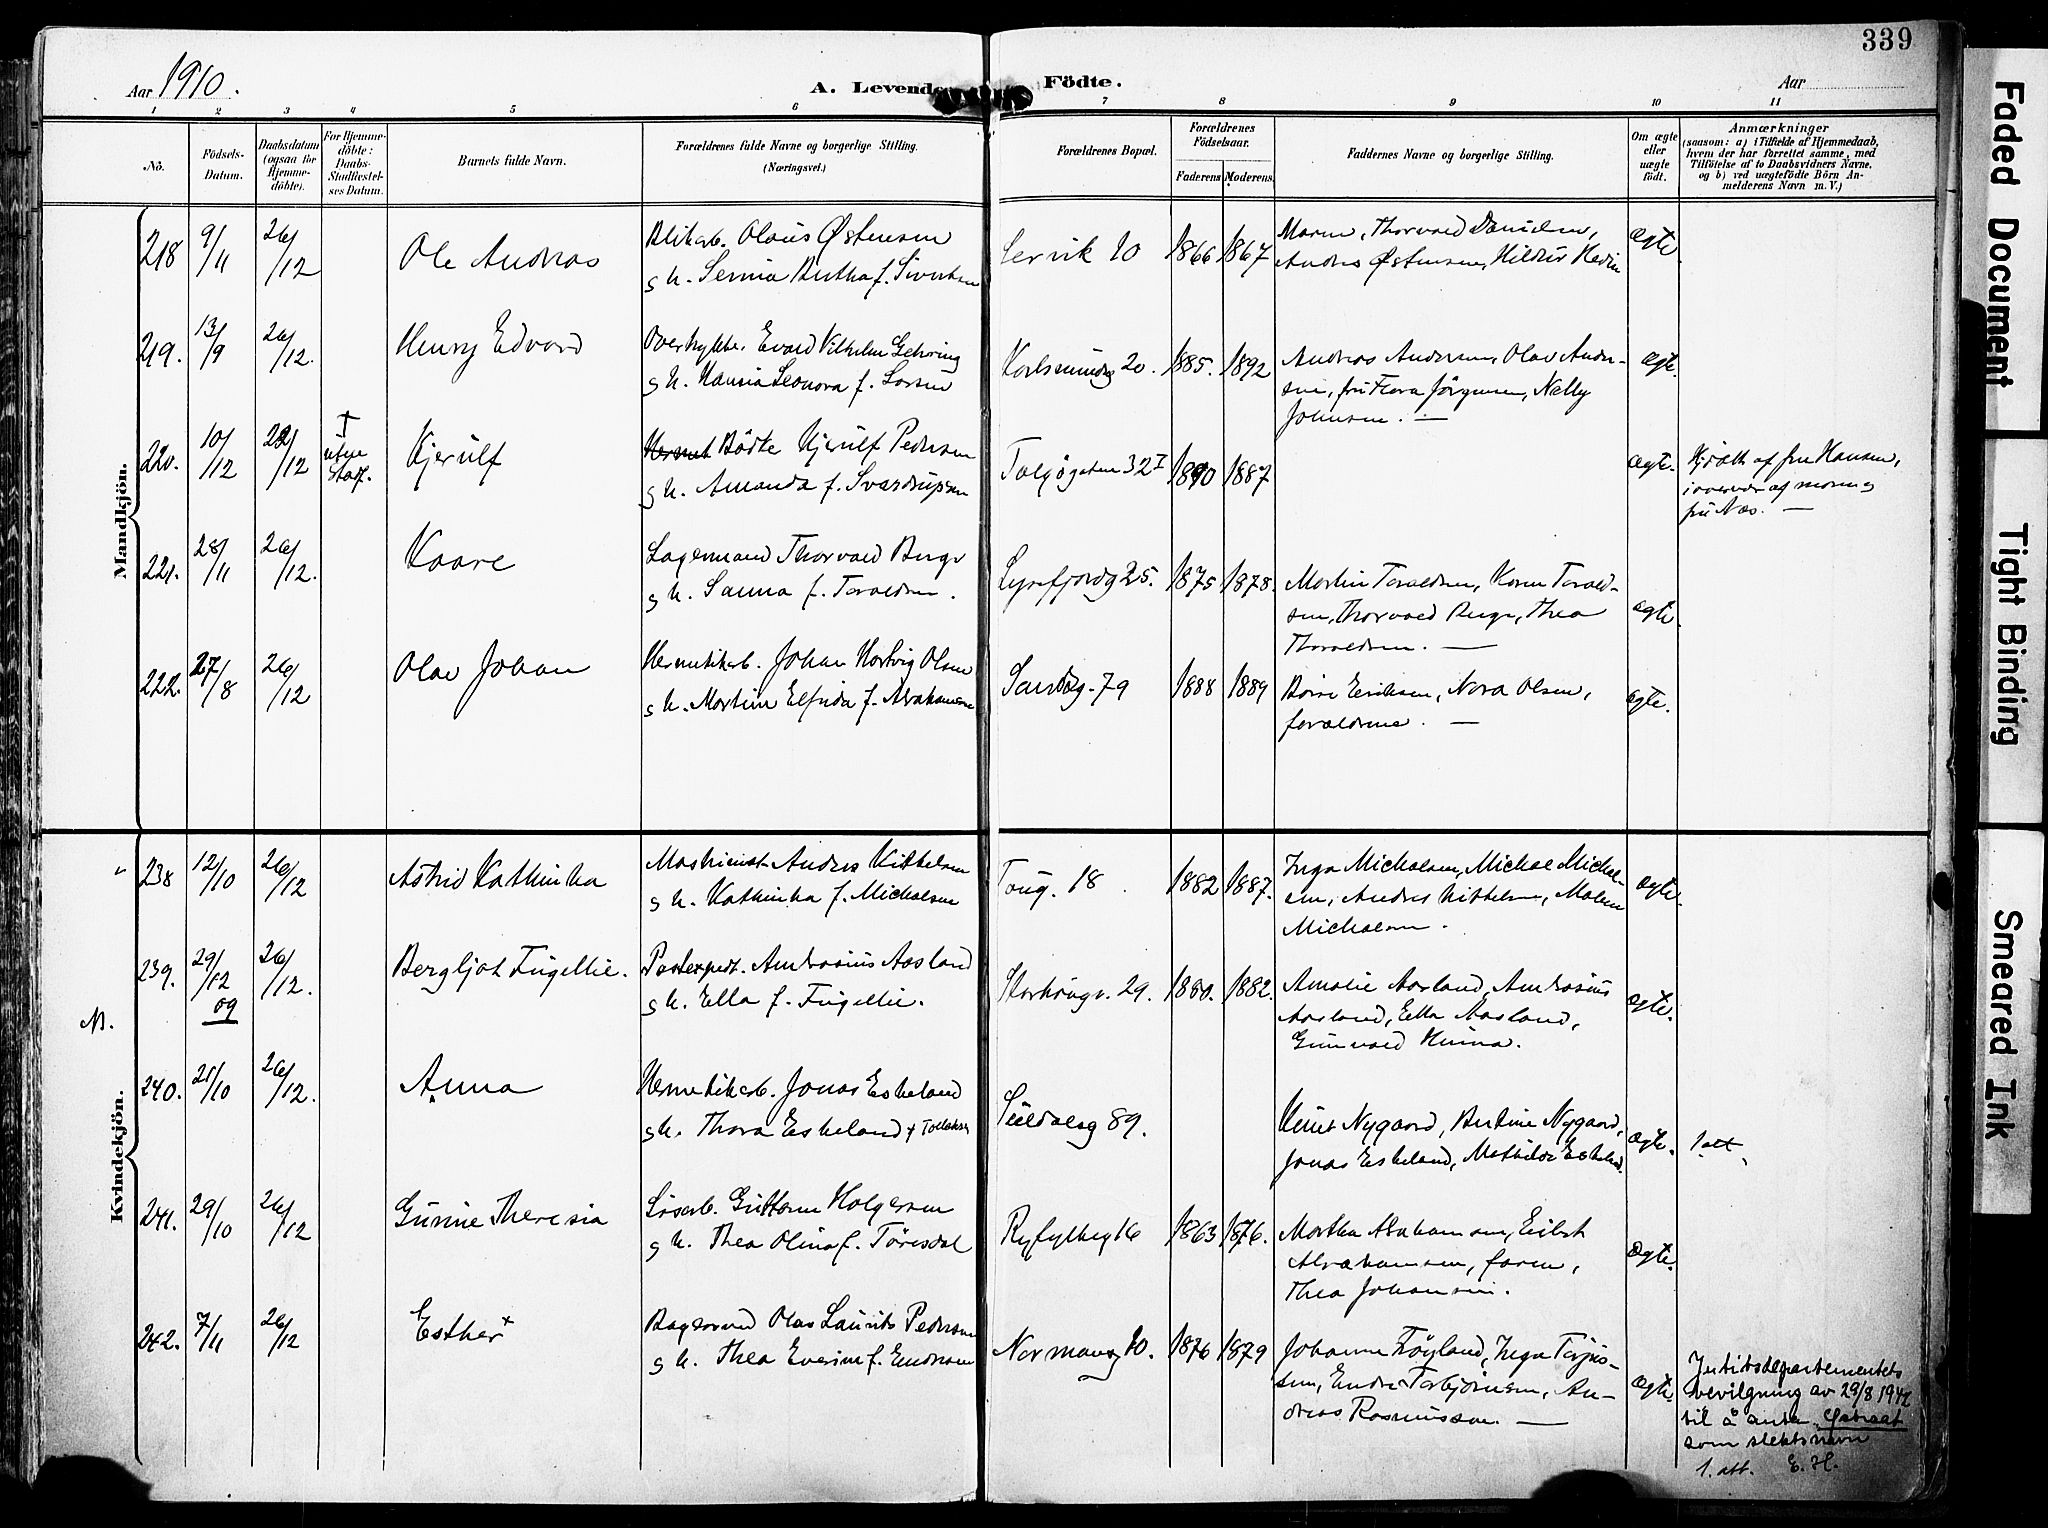 339
Aar 1910.
A. Levende Födte.
Aar
1 2 3 4 5 6 7 8 9 10 11
No.
Födsels-Datum.
Daabsdatum (ogsaa for Hjemme-döbte).
For Hjemme-döbte: Daabs-Stadfæstel-ses Datum.
Barnets fulde Navn.
Forældrenes fulde Navne og borgerlige Stilling. (Næringsvei.)
Forældrenes Bopæl.
Forældrenes Födselsaar.
Faderens Moderens.
Faddernes Navne og borgerlige Stilling.
Om ægte eller uægte födt.
Anmærkninger
(saasom: a) i Tilfælde af Hjemmedaab, hvem der har forrettet samme, med Tilföielse af to Daabsvidners Navne, og b) ved uægtefödte Börn An-melderens Navn m. V.)
Mandkjön.
218 9/11 26/12 Ole Andreas
Blikarb. Olaus Østensen
g h. Serina Bertha f. Sivertsen
Lervik 10 1866 1867
Moren, Thorvald Danielsen,
Andreas Østensen, Hildur Hedin
ægte
219. 13/9 26/12. Henry Edvard
Evald Vilhelm Gehring
g h. Hansia Leonora f. Larsen
Karlsmindeg 20. 1885. 1892
Andreas Andersen, Olav Ander-
sen, fru Flora Jörgensen, Nelly
Johnsen. —
ægte.
220. 10/12 22/12 † uten Stadf. Kjerulf
Bödke Kjerulf Pedersen
g h. Amanda f. Svardrupsen
Talgögaten 32 I 1890 1887
ægte.
Hjdöbt af fru Hansen,
i overvær af moren og
fru Næs. —
221. 28/11 26/12. Kaare
Lagermand Thorvald Berge
g h. Sanna f. Taraldsen.
Lysefjordg 25. 1875 1878.
Martin Taraldsen, Karen Tarald-
sen, Thorvald Berge, Thea
Thoraldsen. —
ægte.
222. 27/8 26/12 Olav Johan
Hermetikarb. Johan Hartvig Olsen
g h. Martine Elfrida f. Abrahamsen
Sandsg. 79 1888 1889
Börre Eriksen, Nora Olsen,
forældrene. —
ægte.
Kvindekjön.
238 12/10 26/12 Astrid Kathinka
Maskinist Andreas Kittelsen
g h. Kathinka f. Michalsen
Toug. 18. 1882 1887.
Inga Michalsen, Michal Michal-
sen, Andreas Kittelsen, Malene
Michalsen.
ægte.
239. 29/12 09 26/12. Bergljot Fugellie.
Postexpedt. Ambrosius Aasland
g h. Ella f. Fugellie.
Storhaugv. 29. 1880. 1882.
Amalie Aasland, Ambrosius
Aasland, Ella Aasland,
Gunvald Kinna.
ægte.
240. 21/10 26/12. Anna
Hermetikarb. Jonas Eskeland
g h. Thora Eskeland f Tollaksen
Suldalsg 89.
Knut Nygaard, Bertine Nygaard,
Jonas Eskeland, Mathilde Eskeland.
ægte.
1 att.
241. 29/10 26/12 Gunne Theresia
Lösarb. Guttorm Holgersen
g h. Thea Olina f. Töresdal
Ryfylkeg 16 1863 1876.
Martha Abrahamsen, Eilert
Abrahamsen, faren,
Thea Johansen.
ægte.
242. 7/11 26/12 Esther x
Bagersvend Olas Laurits Pedersen
g h. Thea Everine f. Endresen
Normansg 10. 1876 1879
Johanne Föyland, Inga Torjus-
sen, Endre Torbjörnsen, An-
dreas Rasmussen. —
ægte.
Justitsdepartementets
bevilgning av 29/8 1942
til å anta Østraat
som slektsnavn
1. att. E. H.
Faded Document
Tight Binding
Smeared Ink